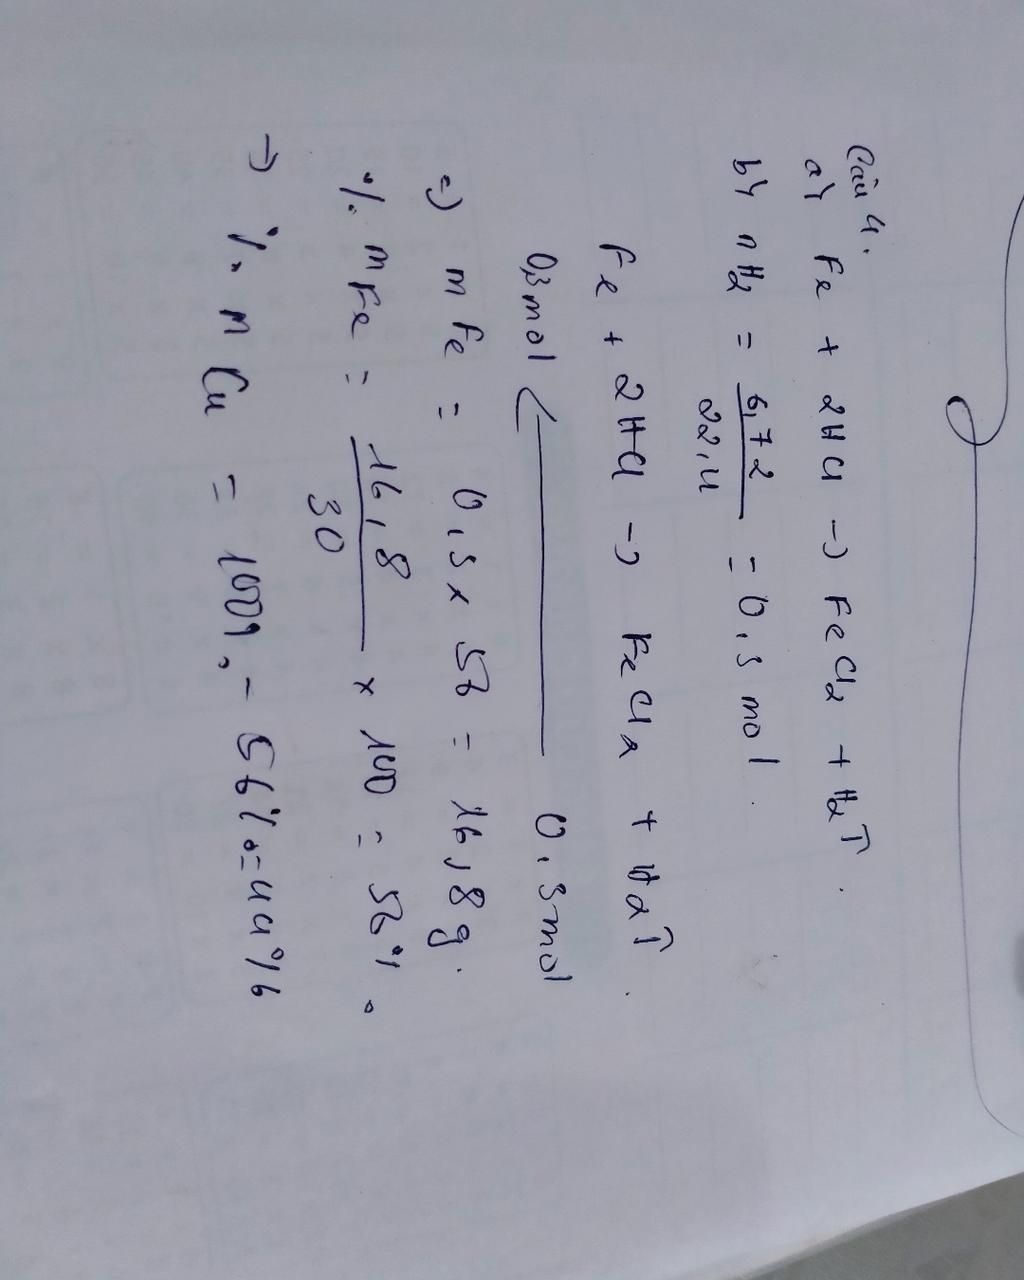 Câu 4.
a) Fe + 2HCl → FeCl2 + H2↑.
b) nH2 = 6,72 / 22,4 = 0,3 mol.
Fe + 2HCl → FeCl2 + H2↑.
0,3 mol ← 0,3 mol
=) mFe = 0,3 x 56 = 16,8g.
% mFe = 16,8 / 30 x 100 = 56%.
→ % mCu = 100% - 56% = 44%